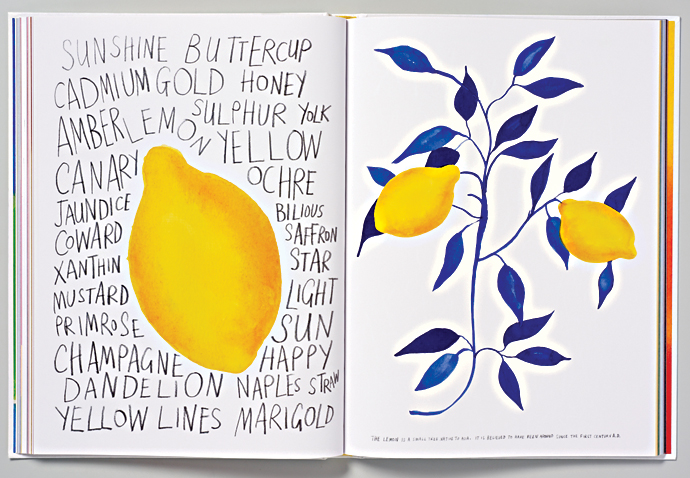 SUNSHINE BUTTERCUP
CADMIUM GOLD HONEY
SULPHUR YOLK
AMBER LEMON YELLOW
CANARY OCHRE
JAUNDICE BILIOUS
COWARD SAFFRON
XANTHIN STAR
MUSTARD LIGHT
PRIMROSE SUN
CHAMPAGNE HAPPY
DANDELION NAPLES STRAW
YELLOW LINES MARIGOLD
THE LEMON IS A SMALL TREE NATIVE TO ASIA. IT IS BELIEVED TO HAVE BEEN SINCE THE FIRST CENTURY A.D.